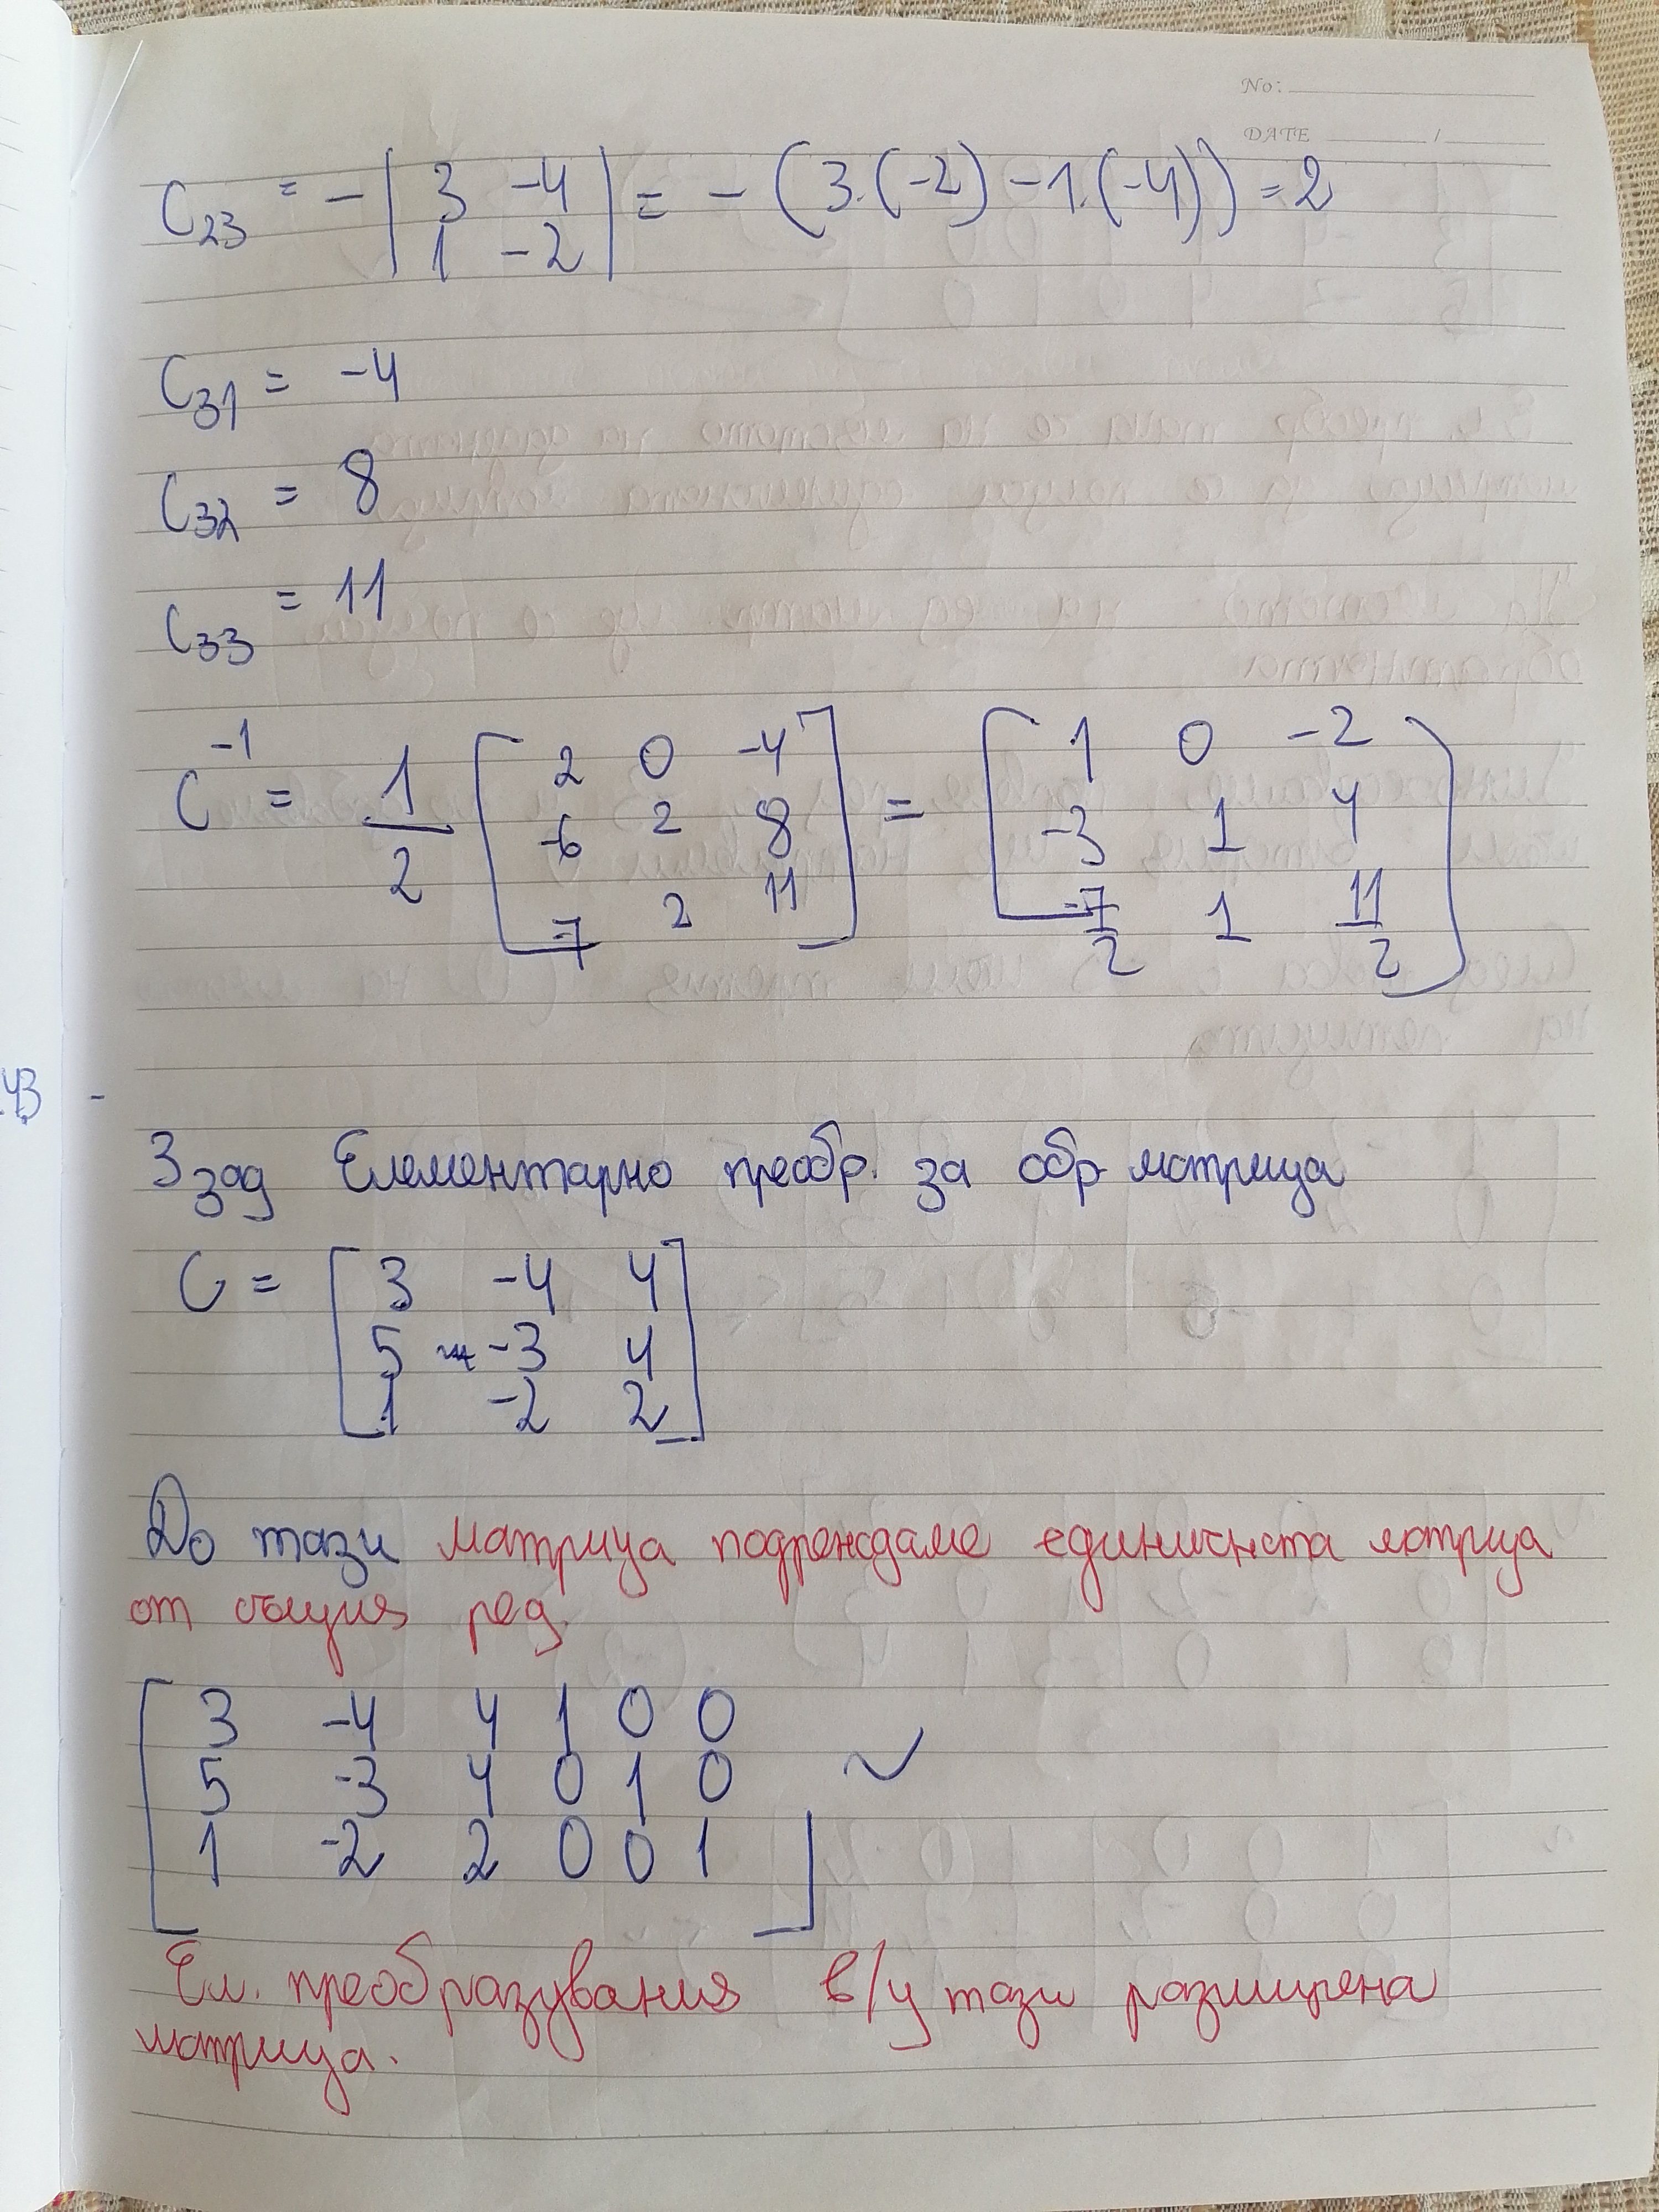 No:
DATE /
C23 = - | 3 -4 | = - (3.(-2) -1.(-4)) = 2
| 1 -2 |
C31 = -4
C32 = 8
C33 = 11
C^-1 = 1/2 [ 2 0 -4 ] = [ 1 0 -2 ]
[ -6 2 8 ] [ -3 1 4 ]
[ -7 2 11 ] [ -7/2 1 11/2 ]
3 зад Елементарно преобр. за обр матрица
C = [ 3 -4 4 ]
[ 5 -3 4 ]
[ 1 -2 2 ]
До тази матрица подреждаме единичната матрица
от същия ред.
[ 3 -4 4 1 0 0 ] ~
[ 5 -3 4 0 1 0 ]
[ 1 -2 2 0 0 1 ]
Ел. преобразувания в/у тази разширена
матрица.